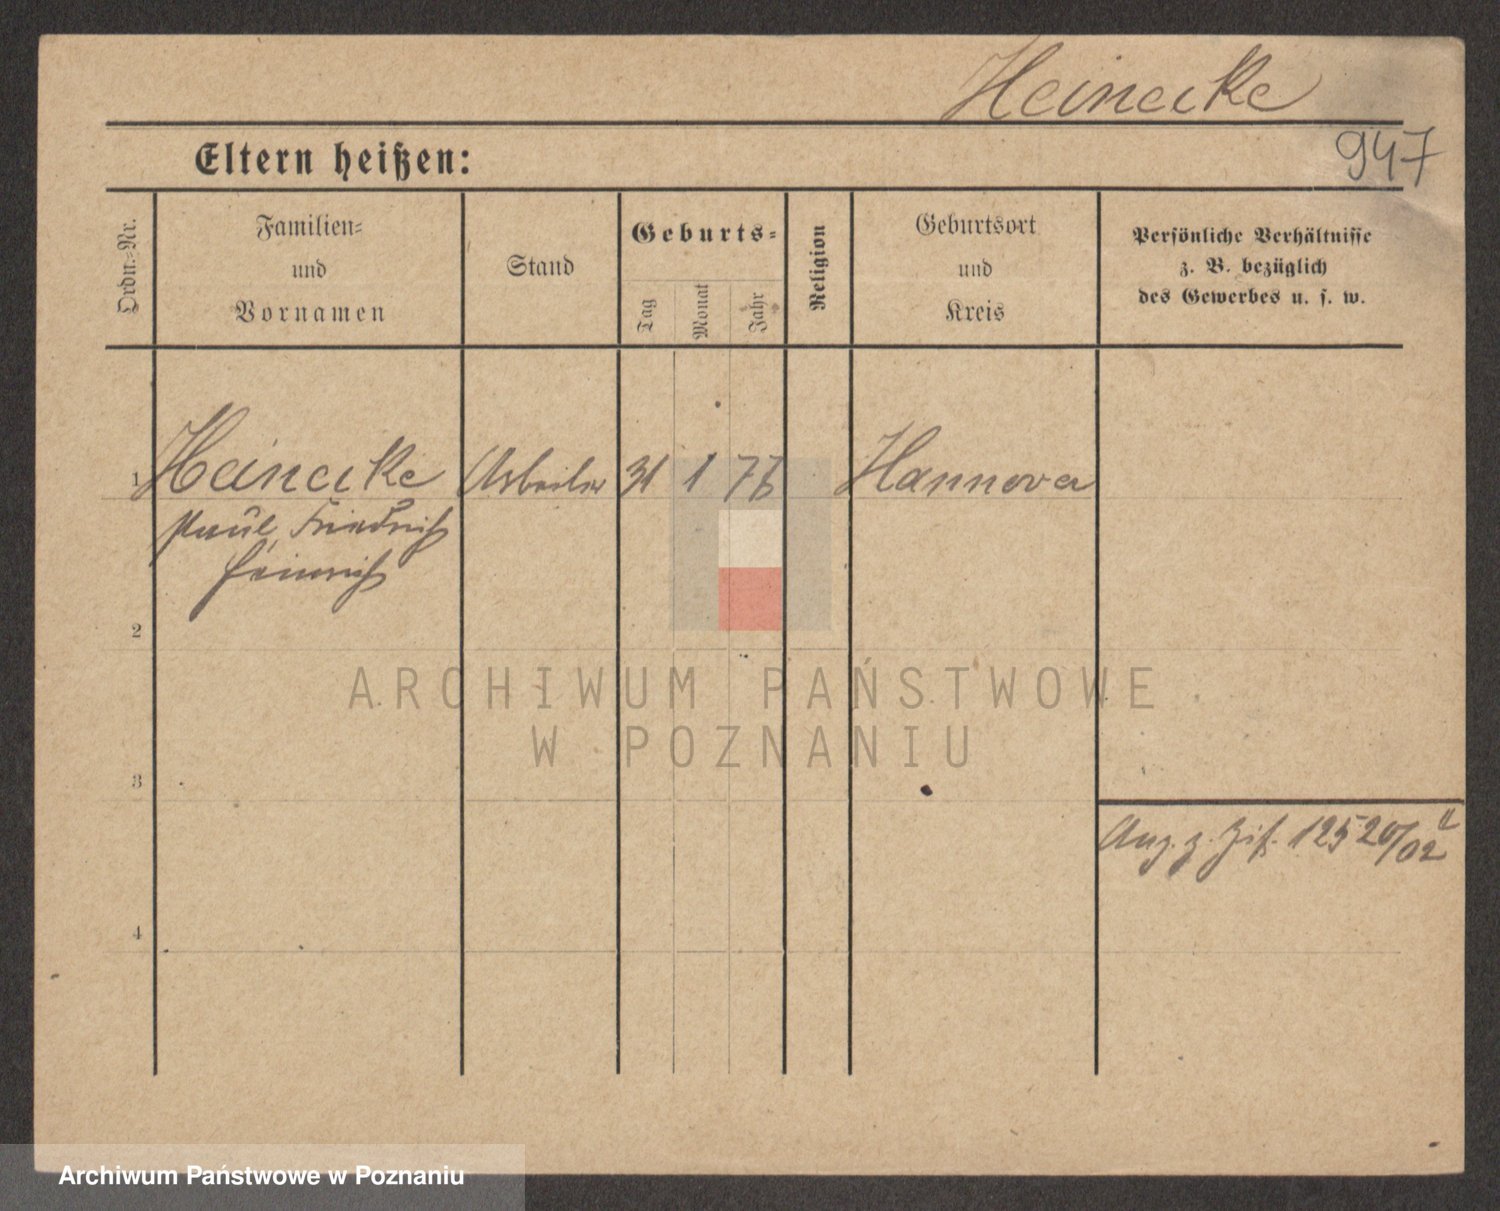 Heinecke
947
Eltern heißen:
Ordn.-Nr.
Familien-
und
Vornamen
Stand
Geburts-
Tag
Monat
Jahr
Religion
Geburtsort
und
Kreis
Persönliche Verhältnisse
z. B. bezüglich
des Gewerbes u. s. w.
1 Heinecke Arbeiter 31 1 76 Hannover
Paul Friedrich
Heinrich
2
ARCHIWUM PAŃSTWOWE
W POZNANIU
3
Ang. z. 12520/02
4
Archiwum Państwowe w Poznaniu